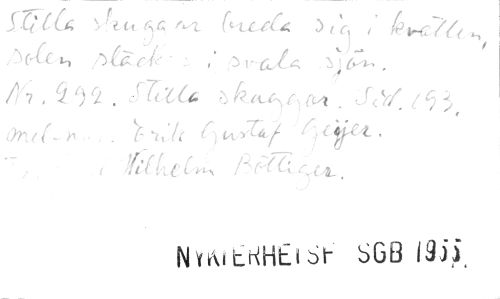 Stilla skuggar breda sig i kvällen,
solen släcks i svala sjön.
Nr. 292. Stilla skuggar. Sid. 193.
Erik Gustaf Geijer.
Wilhelm Böttiger.
NYKTERHETSF SGB 1955.